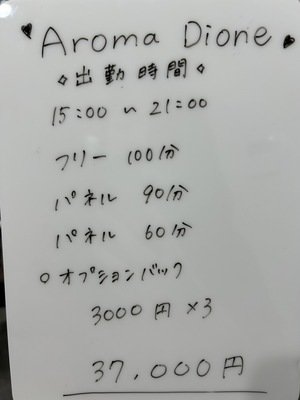 ♥ Aroma Dione ♥
◇出勤時間◇
15:00 〜 21:00
フリー 100分
パネル 90分
パネル 60分
○オプションバック
3000円 ×3
37,000円